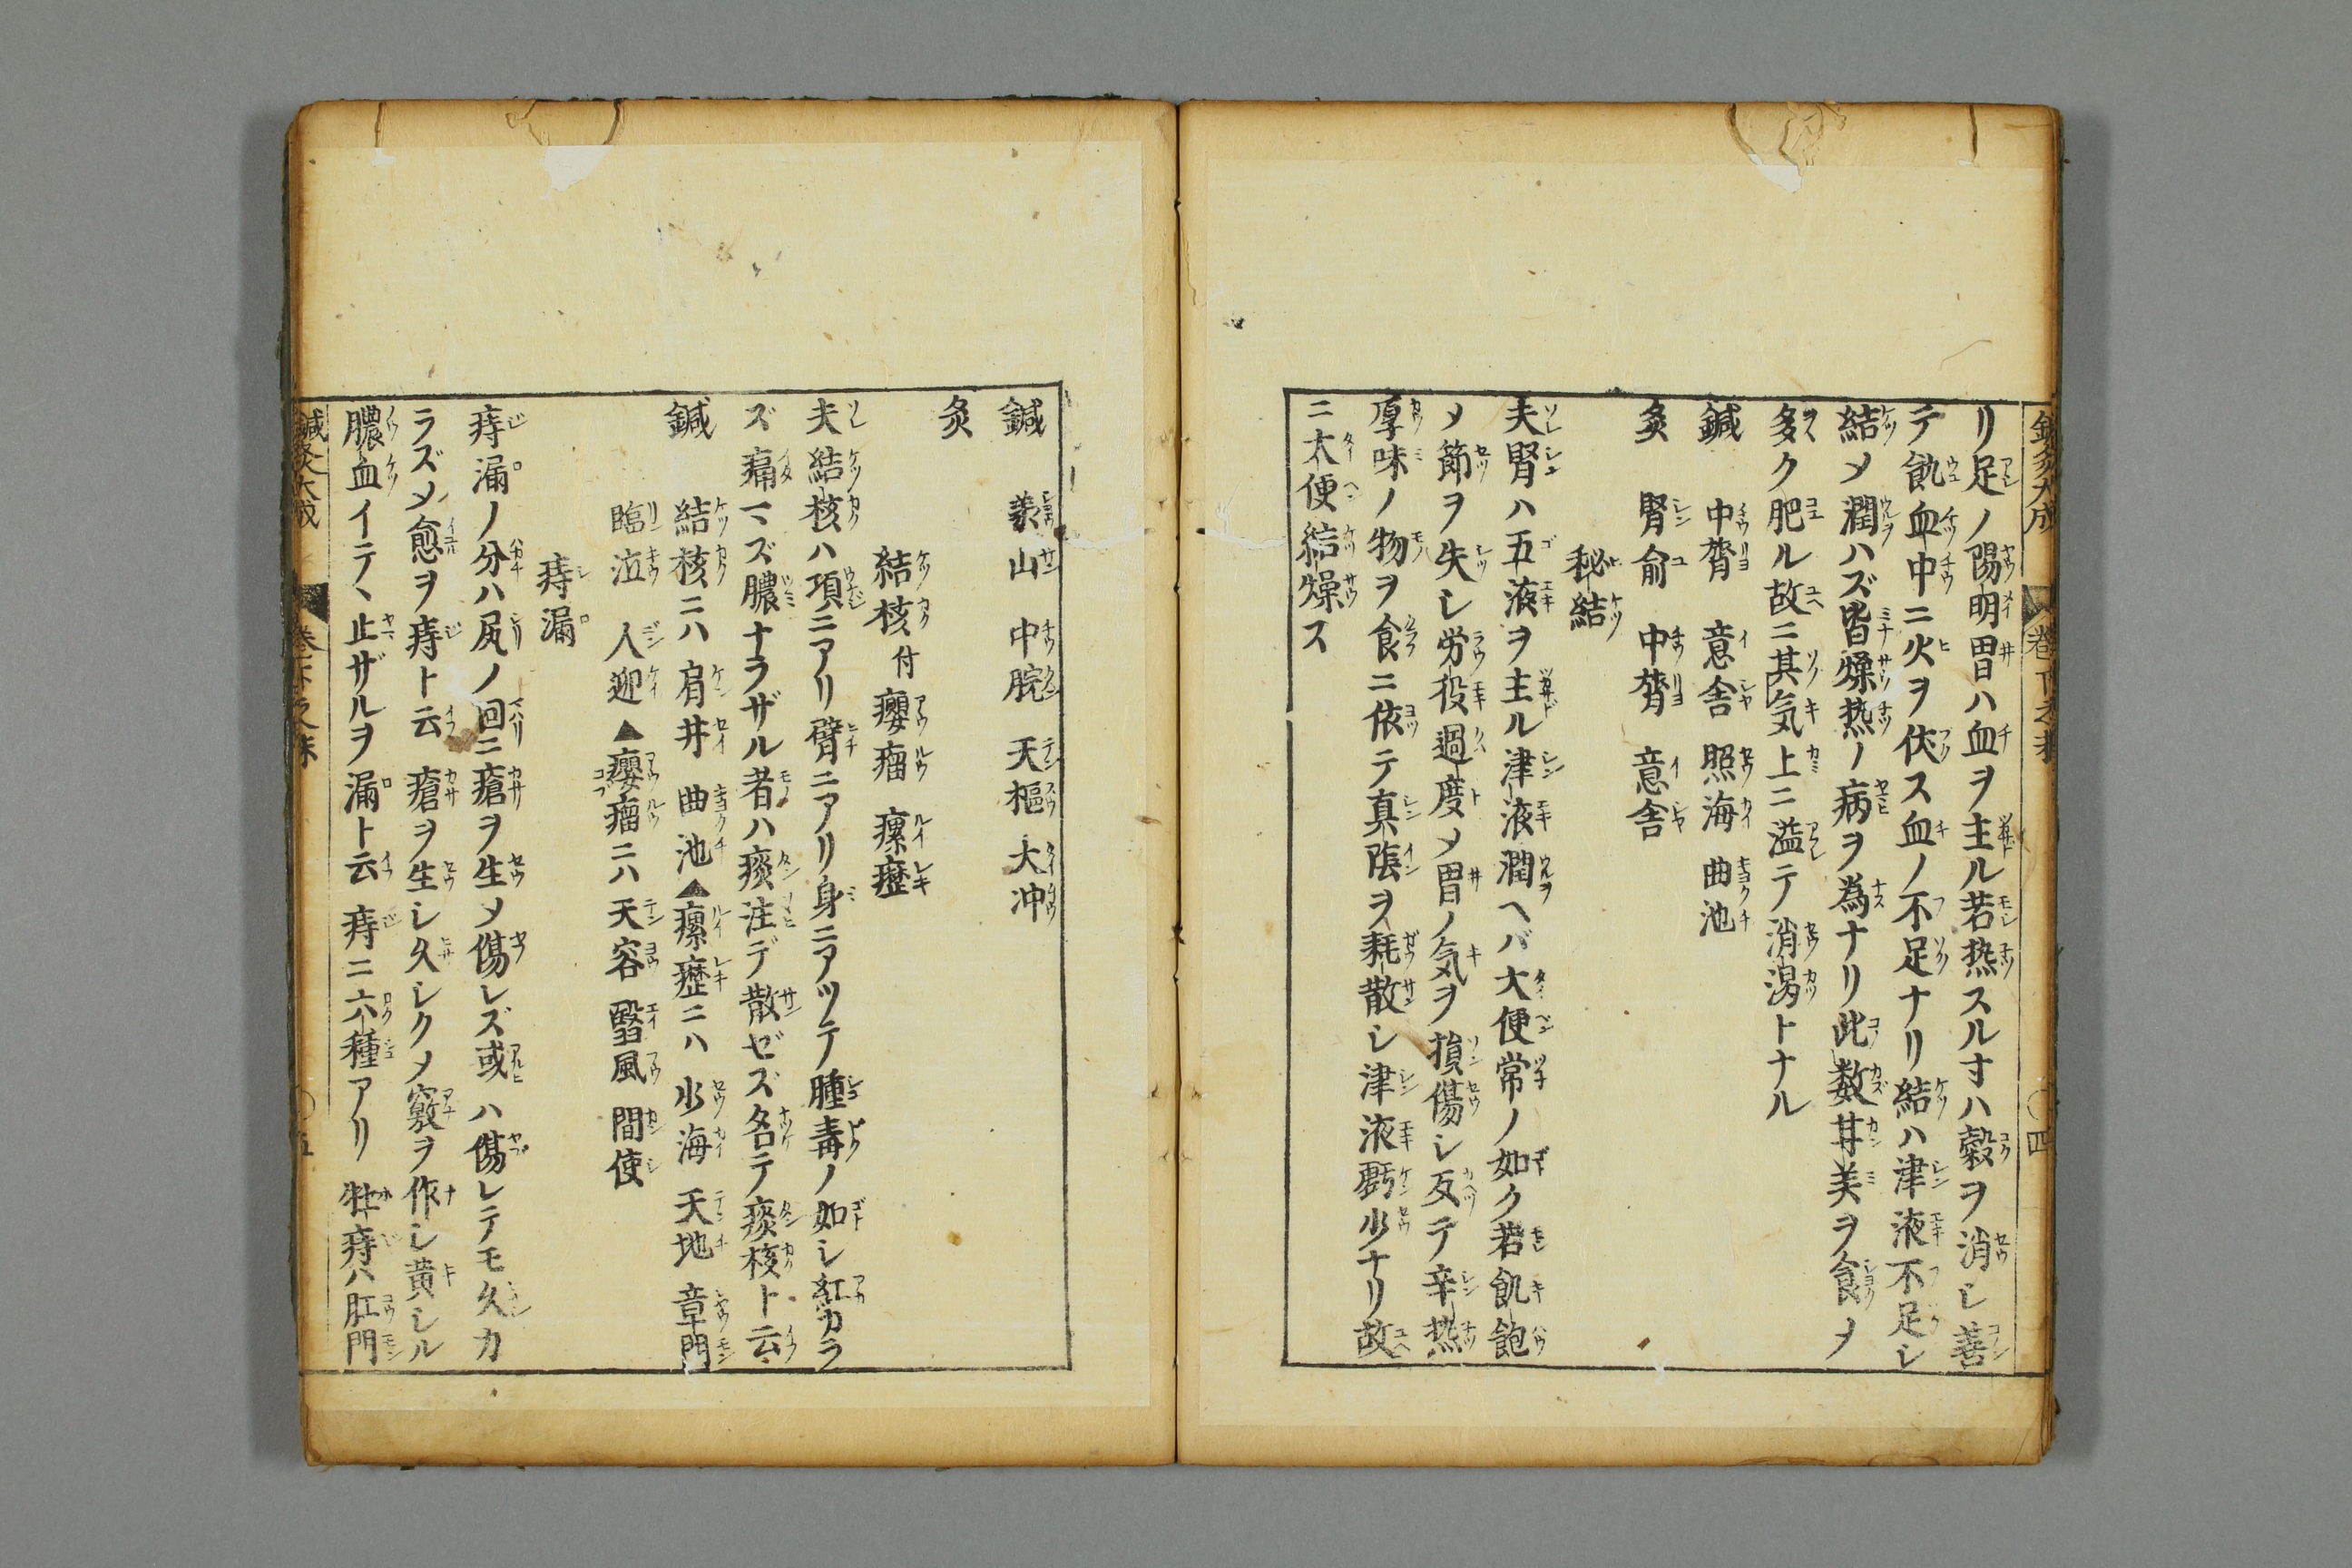 リ足ノ陽明胃ハ血ヲ主ル若熱スル寸ハ穀ヲ消シ善
テ飢血中ニ火ヲ伏ス血ノ不足ナリ結ハ津液不足シ
結メ潤ハズ皆燥熱ノ病ヲ為ナリ此数甘美ヲ食メ
多ク肥ル故ニ其気上ニ溢テ消渇トナル
鍼 中膂 意舎 照海 曲池
灸 腎俞 中膂 意舎
秘結
夫腎ハ五液ヲ主ル津液潤ヘバ大便常ノ如ク若飢飽
メ節ヲ失シ労役過度メ胃ノ気ヲ損傷シ反テ辛熱
厚味ノ物ヲ食ニ依テ真陰ヲ耗散シ津液虧少ナリ故
ニ太便結燥ス
鍼 山 中脘 天樞 大冲
灸
結核 付 癭瘤 瘰癧
夫結核ハ項ニアリ臂ニアリ身ニアツテ腫毒ノ如シ紅カラ
ズ痛マズ膿ナラザル者ハ痰注デ散ゼズ名テ痰核ト云
鍼 結核ニハ 肩井 曲池▲瘰癧ニハ 少海 天地 章門
臨泣 人迎▲癭瘤ニハ 天容 翳風 間使
痔漏
痔漏ノ分ハ尻ノ回ニ瘡ヲ生メ傷レズ或ハ傷レテモ久カ
ラズメ愈ヲ痔ト云 瘡ヲ生シ久シクメ竅ヲ作シ黄シル
膿血イテヽ止ザルヲ漏ト云 痔ニ六種アリ 牡痔ハ肛門
鍼灸大成 巻下之末 〇四
鍼灸大成 巻下之末 〇五